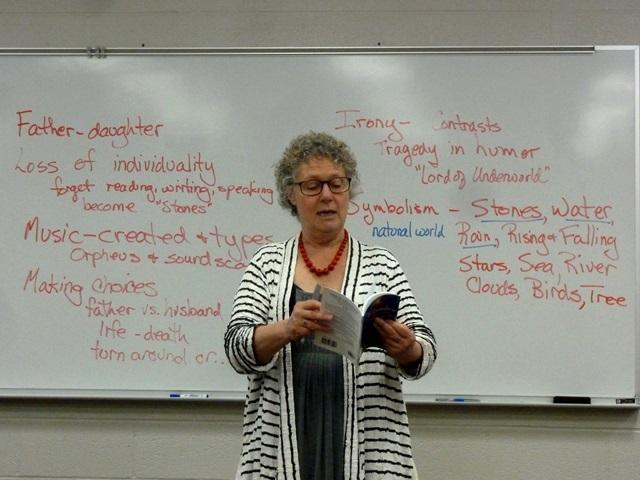 Father-daughter
Loss of individuality
forget reading, writing, speaking
become "stones"
Music-created & types
Orpheus & sound
Making choices
father vs. husband
life-death
turn around or...
Irony- Contrasts
Tragedy in humor
"Lord of Underworld"
Symbolism - Stones, Water,
natural world Rain, Rising & Falling
Stars, Sea, River
Clouds, Birds, Tree